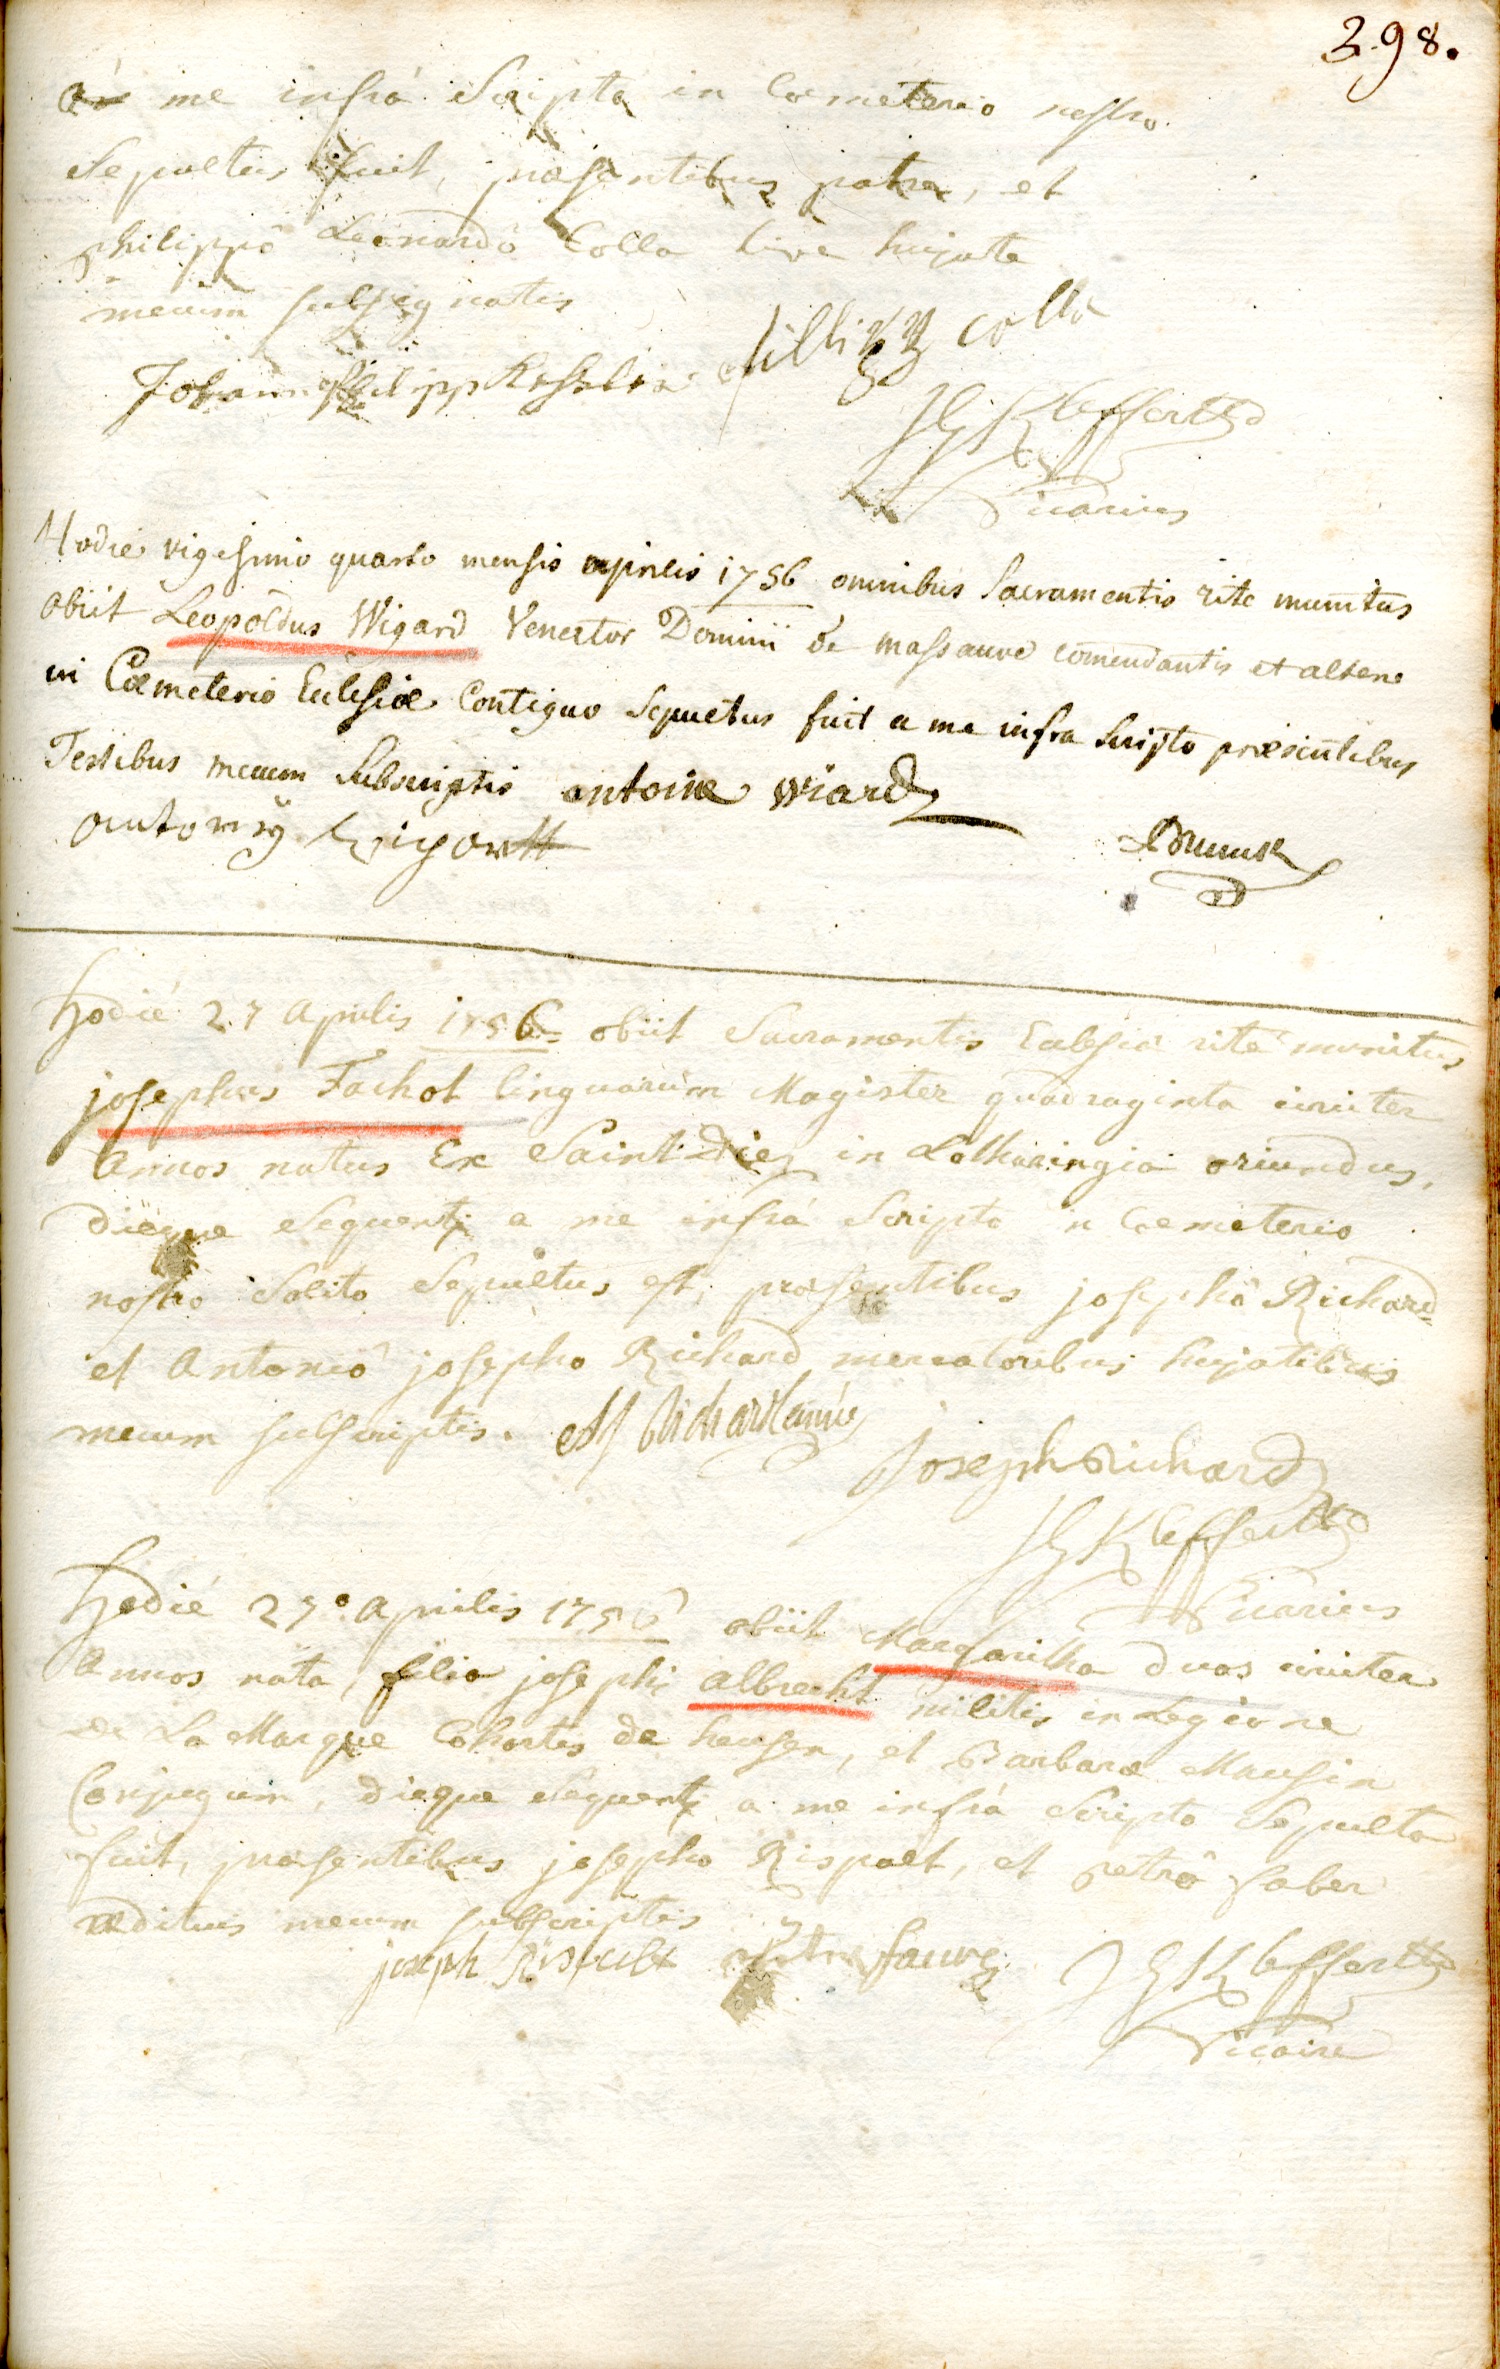 298.
a me infrá Scripto in Coemeterio nostro
Sepultus fuit, praesentibus patre, et
philippô Leonardô Colla Cive hujate
mecum subsignatis
Johann Philipp Kesslер Fillibß Colla
JG Kleffert
Vicarius
Hodie vigesimo quarto mensis aprilis 1756 omnibus Sacramentis rite munitus
obiit Leopoldus Wigard Venator Domini de massauve comendantis et altera
in Coemeterio Eclesiae Contiguo Sepultus fuit a me infra Scripto praesentibus
Testibus mecum Subscriptis antoine wiard
antoniÿ Wigartt
Hodié 27 Aprilis 1756 obiit Sacramentis Eclesiae rité munitus
josephus Fachot linguarum Magister quadraginta circiter
Annos natus Ex Saint-Diez in Lotharingia oriundus,
dieque Sequenti a me infrá Scripto in Coemeterio
nostro Solito Sepultus est, praesentibus josephô Richard
et Antonio josepho Richard mercatoribus hujatibus
mecum subscriptis. AJ Richard l'ainé
Joseph Richard
JG Kleffert
Vicarius
Hodié 27° Aprilis 1756 obiit Margaritha duos circiter
Annos nata filia josephi Albrecht militis in Legione
de La Marque Cohortis de hausen, et Barbarae Mausin
Conjugum, dieque Sequenti a me infrá Scripto Sepulta
fuit, praesentibus josepho Rispalt, et petrô faber
aedituis mecum subscriptis
joseph Rispalt petre fauve JG Kleffert
Vicaire